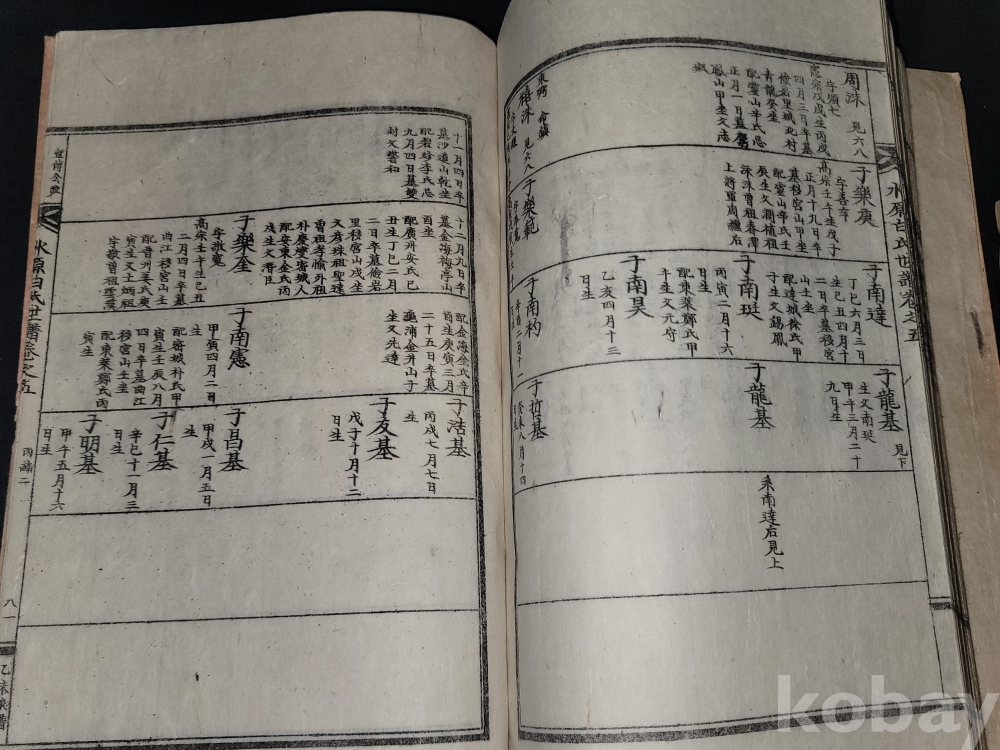 水原白氏世譜卷之五
周洙 見六八
字順七
憲宗戊戌生丙戌
四月三日卒墓
儉岩里城北村
青龍癸坐
配靈山辛氏忌
正月一日墓
鳳山甲坐文志
子樂庚
字善章
高宗壬午生戊子
正月十九日卒
墓移宮山甲坐
配靈山辛氏壬
辰生文潤植祖
洙洙曾祖春濟
上將軍貞
子南達
丁巳六月三日
生己丑四月十
二日卒墓移宮
山壬坐
配達城徐氏甲
寸生文錫鳳
子龍基 見下
生父南珽
甲午三月二十
九日生
子南珽
丙寅二月十六
日生
配東萊鄭氏甲
坐父元守
子龍基
系南達后見上
子南昊
乙亥四月十三
日生
見六八
子樂範
子南杓
二月十二
子哲基
癸未八月十四
十一月四日卒
墓沙道山乾坐
配碧珍李氏忌
九月四日墓雙
封父馨和
十二月九日卒
墓金海梅亭山
酉坐
配廣州安氏己
丑生丁巳二月
二日卒墓儉岩
里移宮山戌坐
父彦珠祖聖達
曾祖孝愉外祖
朴慶燮密城人
配安東金氏丙
戌生文濟臣
配金海金氏辛
酉生庚寅三月
二十五日卒墓
龜浦金井山子
坐父先達
子浩基
丙戌七月七日
生
子友基
戊子十月十二
日生
子樂奎
字敬寬
高宗壬午生己丑
二月四日卒墓
曲江移宮山壬坐
配晋州姜氏庚
寅生文士炳祖
字敬曾祖理
子南憲
甲寅四月二日
生
配密城朴氏甲
寅生壬辰八月
四日卒墓曲江
移宮山壬坐
配東萊鄭氏丙
寅生
子昌基
甲戌一月五日
生
子仁基
辛巳十一月三
日生
子明基
甲午五月十六
日生
水原白氏世譜卷之五
丙編二
八一
乙未
kobay